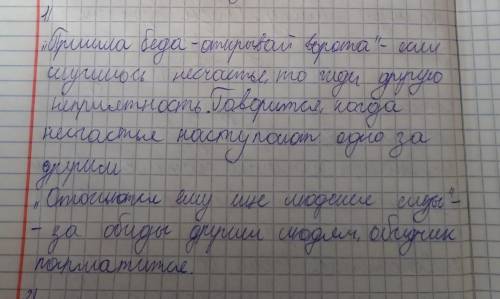 1)
„Пришла беда - открывай ворота" - если
случилось несчастье, то жди другую
неприятность. Говорится, когда
несчастья наступают одно за
другим
„Отольются ему еще людские слезы" -
- за обиды другим людям, обидчик
2)